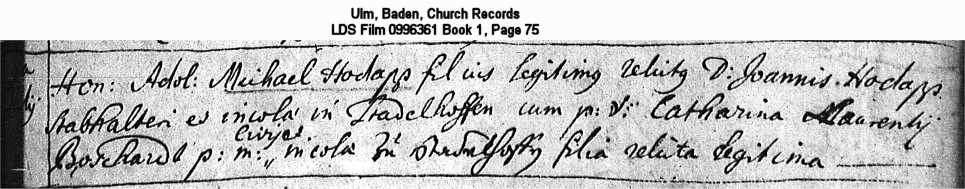 Ulm, Baden, Church Records
LDS Film 0996361 Book 1, Page 75
Hon: Adol: Michael Hodapp filius legitimus relictus D: Joannis Hodapp
Stabhalteri et incola in Stadelhoffen cum p: V: Catharina Laurentij
Cives
Borchard p: m: incola zu filia relicta legitima